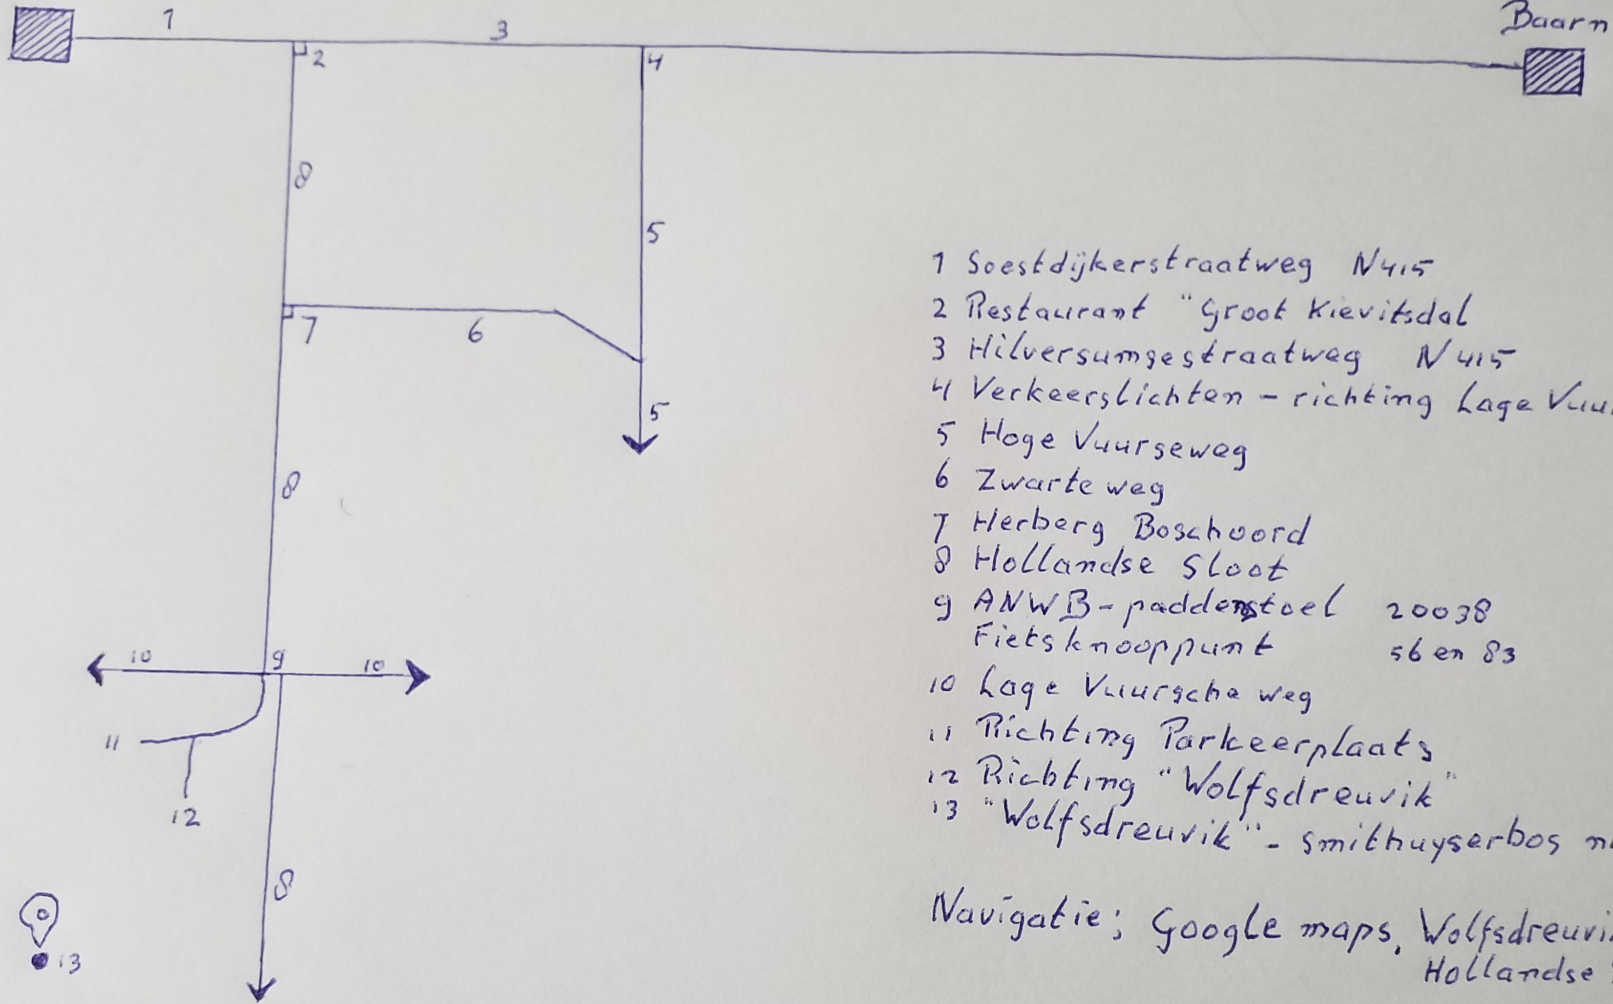 1
3
Baarn
2
4
8
5
7
6
5
8
10
9
10
11
12
8
13
1 Soestdijkerstraatweg N415
2 Restaurant "Groot Kievitsdal
3 Hilversumsestraatweg N415
4 Verkeerslichten - richting Lage Vuu
5 Hoge Vuurseweg
6 Zwarte weg
7 Herberg Boschoord
8 Hollandse Sloot
9 ANWB-paddenstoel 20038
Fietsknooppunt 56 en 83
10 Lage Vuursche weg
11 Richting Parkeerplaats
12 Richting "Wolfsdreuvik"
13 "Wolfsdreuvik" - Smithuyserbos n
Navigatie; Google maps, Wolfsdreuvi
Hollandse